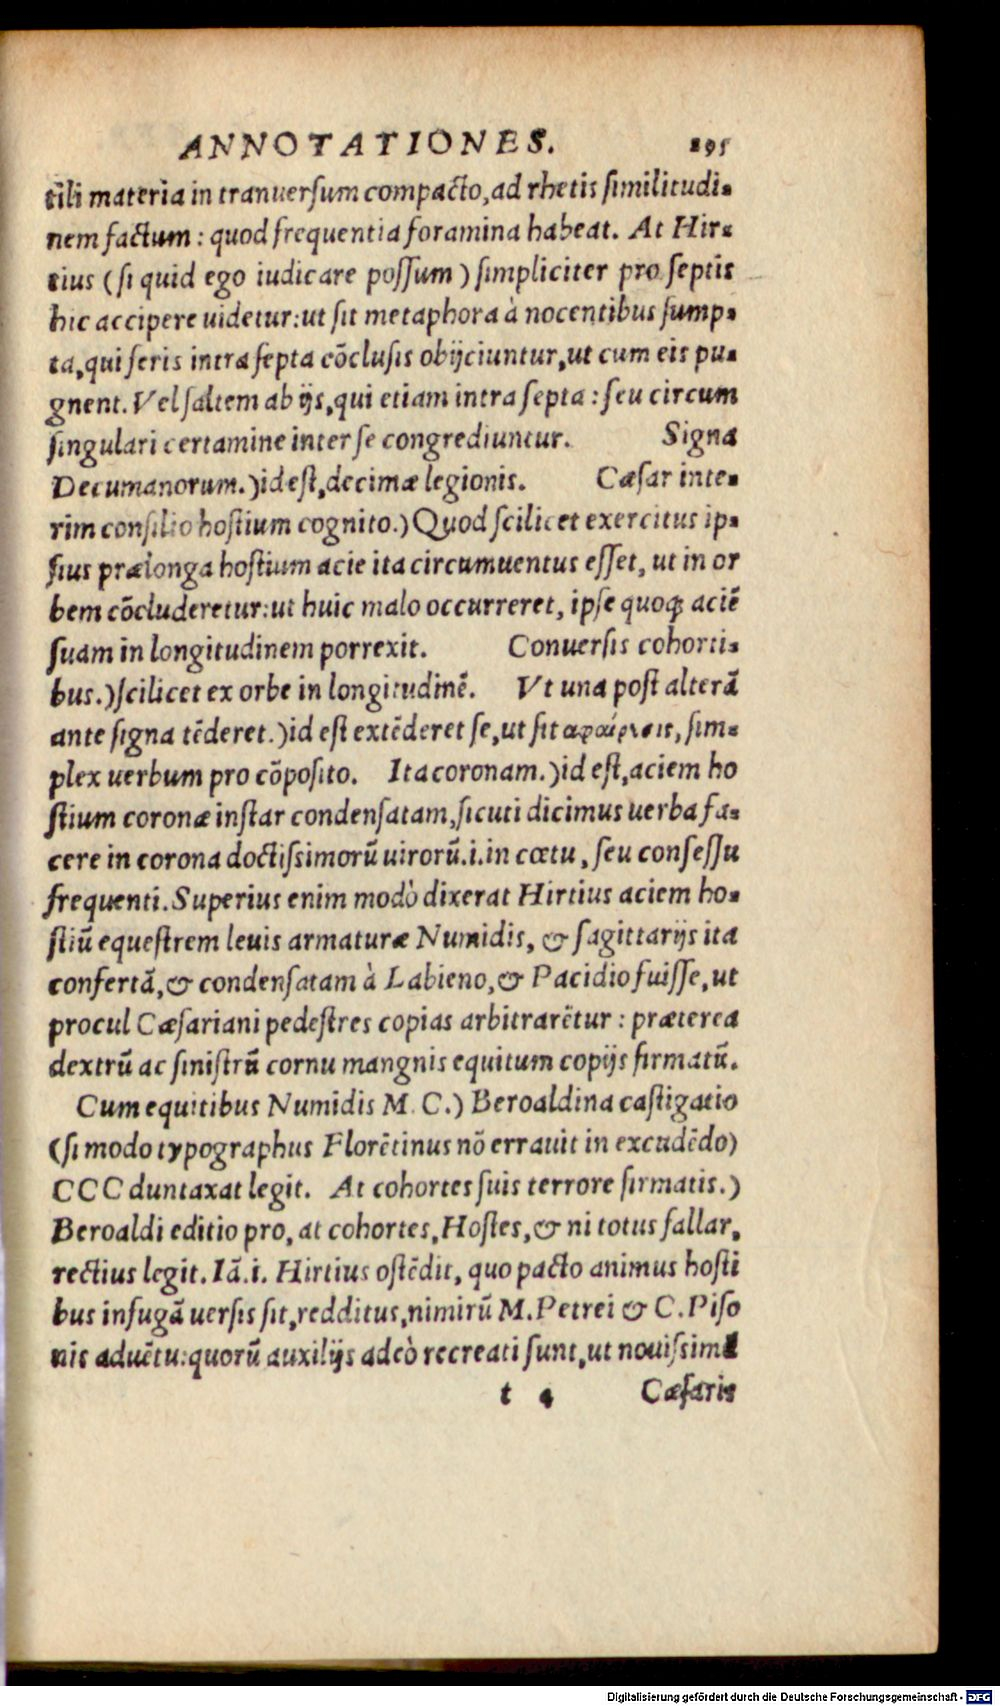 ANNOTATIONES. 295
tili materia in tranuersum compacto, ad rhetis similitudi-
nem factum: quod frequentia foramina habeat. At Hir-
tius (si quid ego iudicare possum) simpliciter pro septis
hic accipere uidetur: ut sit metaphora à nocentibus sump-
ta, qui feris intra septa cõclusis obijciuntur, ut cum eis pu-
gnent. Vel saltem ab ijs, qui etiam intra septa: seu circum
singulari certamine inter se congrediuntur. Signa
Decumanorum.) id est, decimæ legionis. Cæsar inte-
rim consilio hostium cognito.) Quod scilicet exercitus ip-
sius prælonga hostium acie ita circumuentus esset, ut in or
bem cõcluderetur: ut huic malo occurreret, ipse quoq; aciẽ
suam in longitudinem porrexit. Conuersis cohorti-
bus.) scilicet ex orbe in longitudinẽ. Vt una post alterã
ante signa tẽderet.) id est extẽderet se, ut sit sim-
plex uerbum pro cõposito. Ita coronam.) id est, aciem ho
stium coronæ instar condensatam, sicuti dicimus uerba fa-
cere in corona doctissimorũ uirorũ .i. in cœtu, seu consessu
frequenti. Superius enim modò dixerat Hirtius aciem ho-
stiũ equestrem leuis armaturæ Numidis, & sagittarijs ita
confertã, & condensatam à Labieno, & Pacidio fuisse, ut
procul Cæsariani pedestres copias arbitrarẽtur: præterea
dextrũ ac sinistrũ cornu mangnis equitum copijs firmatũ.
Cum equitibus Numidis M. C.) Beroaldina castigatio
(si modo typographus Florẽtinus nõ errauit in excudẽdo)
CCC duntaxat legit. At cohortes suis terrore firmatis.)
Beroaldi editio pro, at cohortes, Hostes, & ni totus fallar,
rectius legit. Iã .i. Hirtius ostẽdit, quo pacto animus hosti
bus in fugã uersis sit, redditus, nimirũ M. Petrei & C. Piso
nis aduẽtu: quorũ auxilijs adeò recreati sunt, ut nouissimæ
t 4 Cæsaris
Digitalisierung gefördert durch die Deutsche Forschungsgemeinschaft - DFG